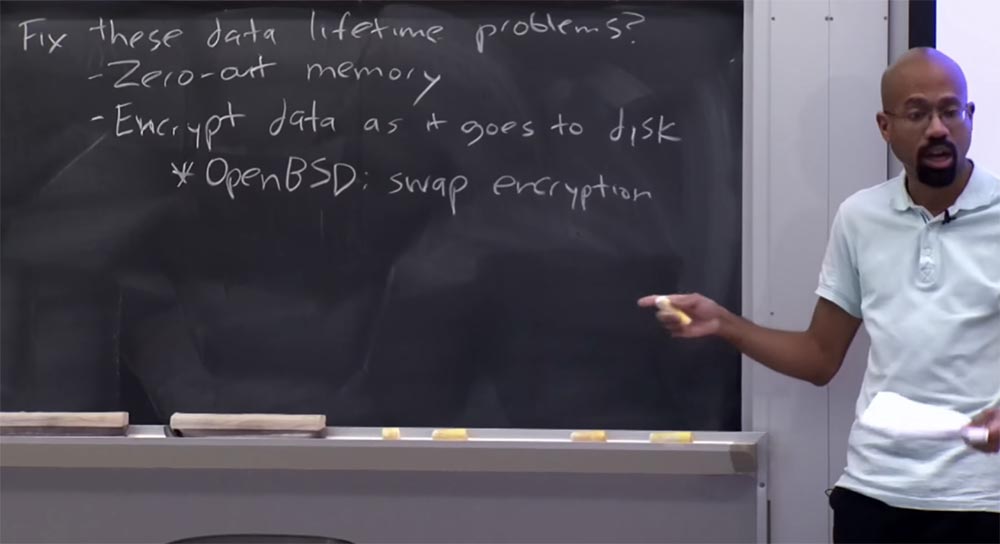 Fix these data lifetime problems?
- Zero-out memory
- Encrypt data as it goes to disk
* OpenBSD: swap encryption